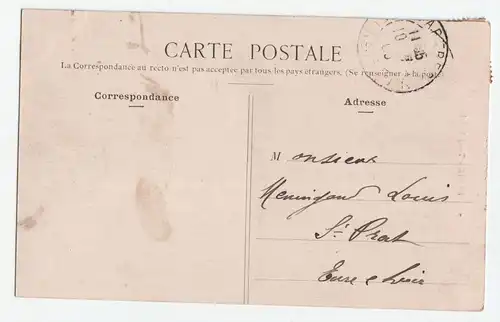 CARTE POSTALE
La Correspondance au recto n'est pas acceptée par tous les pays étrangers. (Se renseigner à la poste)
Correspondance
Adresse
Monsieur
Louis
St Prest
Eure & Loir